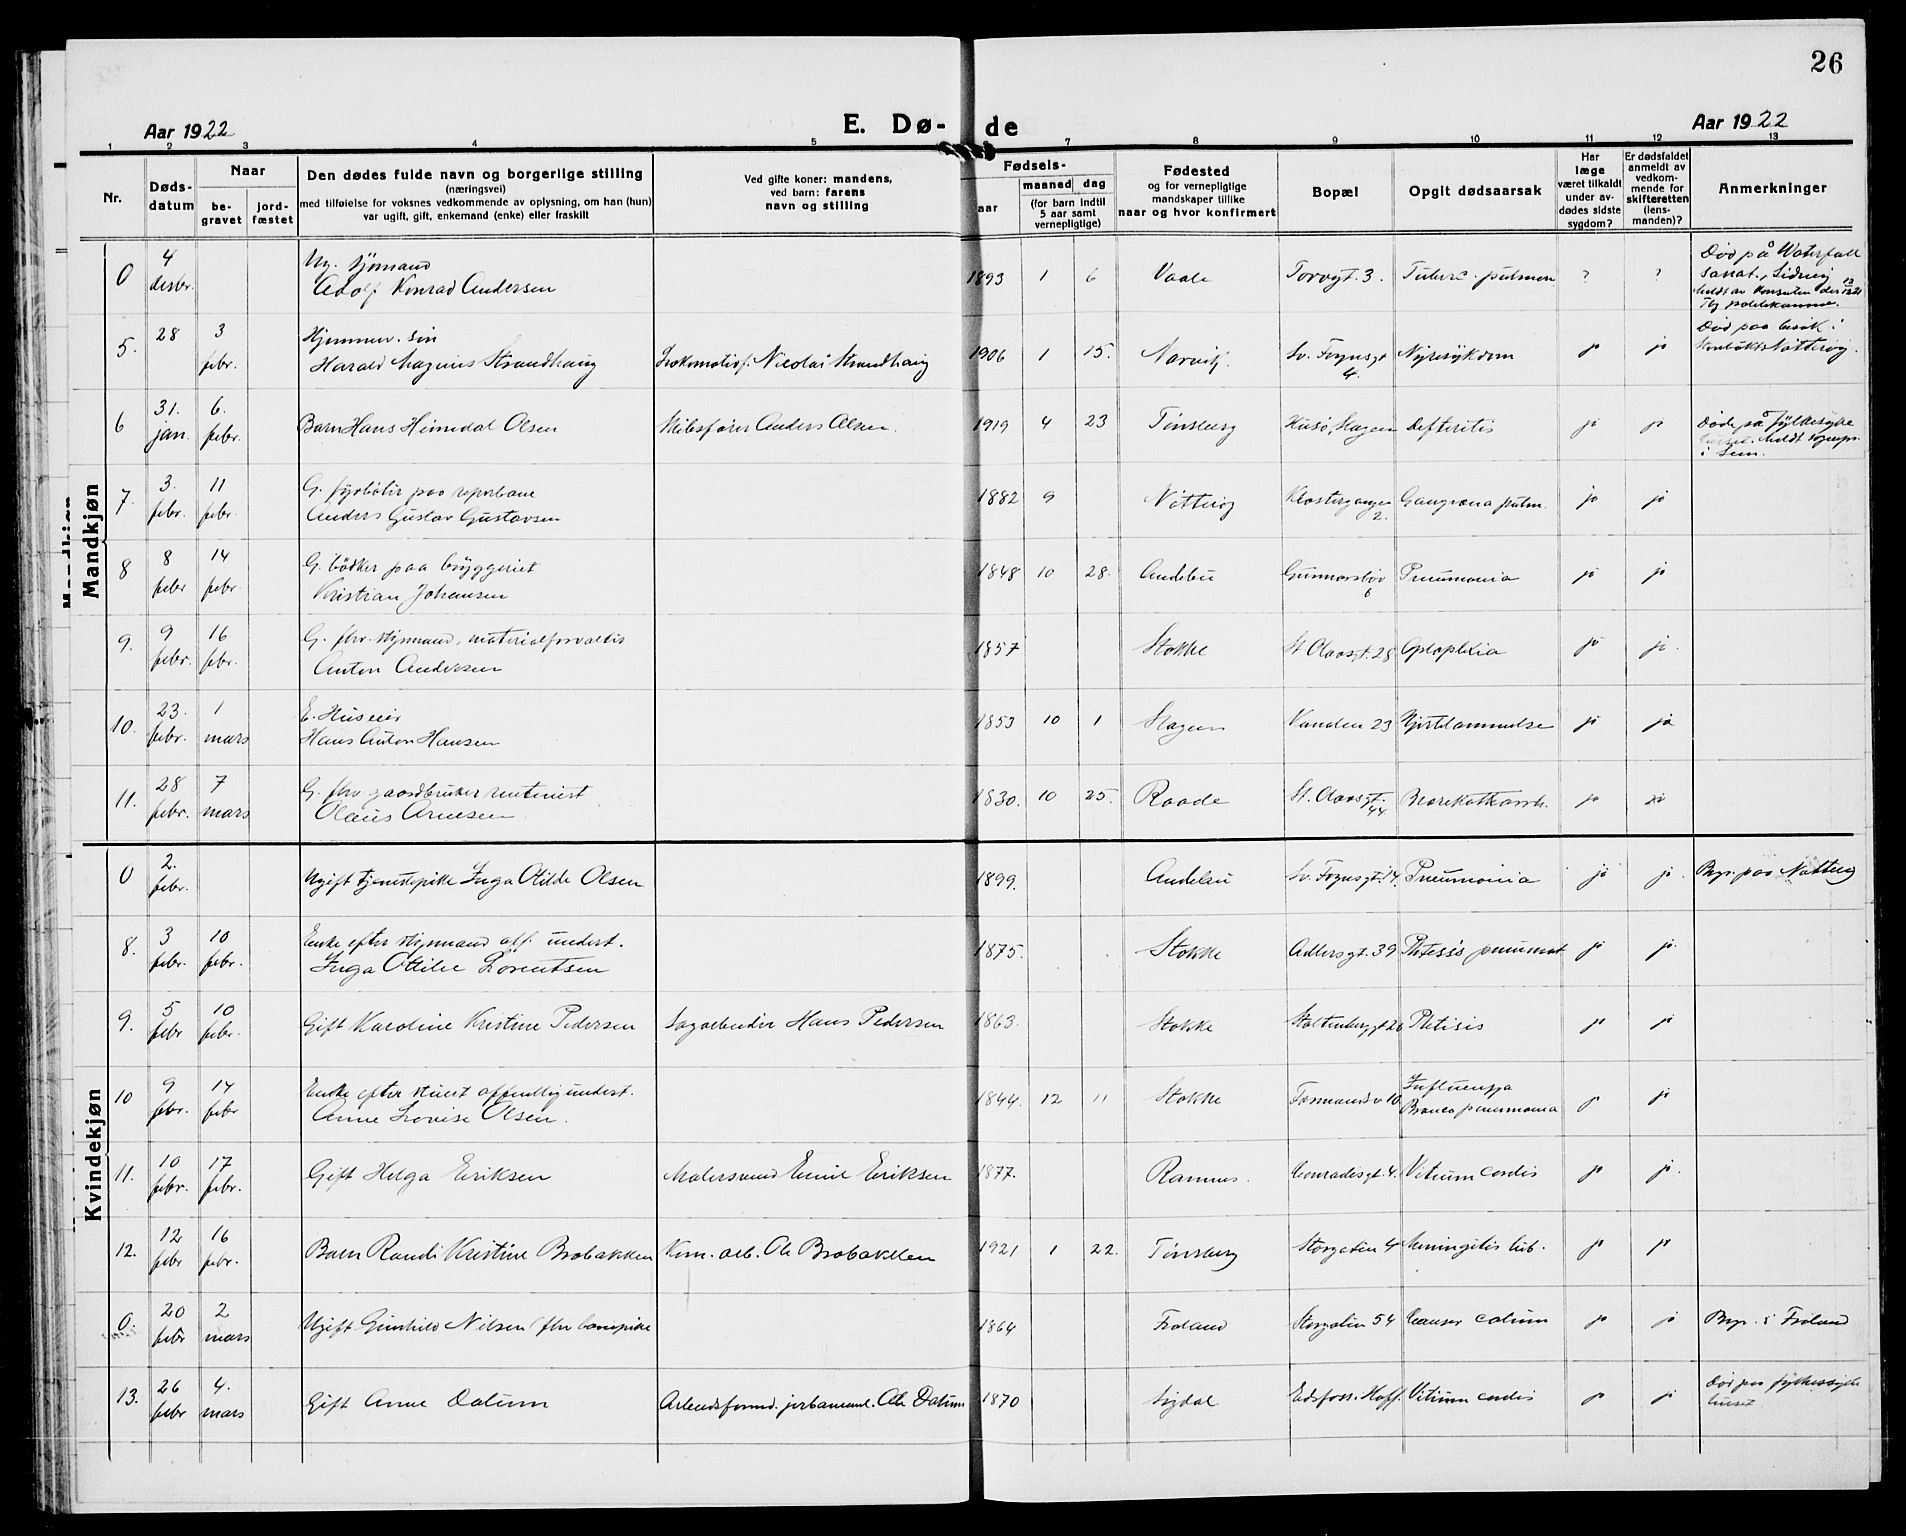 26
Aar 1922
E. Dø- de
Aar 1922
1 2 3 4 5 7 8 9 10 11 12 13
Nr.
Døds-
datum
Naar
be-
gravet
jord-
fæstet
Den dødes fulde navn og borgerlige stilling
(næringsvei)
med tilføielse for voksnes vedkommende av oplysning, om han (hun)
var ugift, gift, enkemand (enke) eller fraskilt
Ved gifte koner: mandens,
ved barn: farens
navn og stilling
Fødsels-
aar
maaned dag
(for barn indtil
5 aar samt
vernepligtige)
Fødested
og for vernepligtige
mandskaper tillike
naar og hvor konfirmert
Bopæl
Opgit dødsaarsak
Har
læge
været tilkaldt
under av-
dødes sidste
sygdom?
Er dødsfaldet
anmeldt av
vedkom-
mende for
skifteretten
(lens-
manden)?
Anmerkninger
Mandkjøn
0 4 desbr. Ug. sjømand
Adolf Konrad Andersen 1893 1 6 Vaale Torvgt. 3. Tuberc. pulmon ? ? Død på Waterfall
sanat., Sidney
5. 28 3 febr. Hjemmev. søn
Harald Magnus Strandhaug Lokomotivf. Nicolai Strandhaug 1906 1 15. Narvik. Sv. Foynsgt 4. Nyresykdom ja ja Død paa besøk i
Nøtterøy.
6 31. jan. 6. febr. Barn Hans Heimdal Olsen Anders Olsen. 1919 4 23 Tønsberg Husø, Slagen Defteritis ja ja Døde på fylkesyke
huset. Meldt sognepr.
i Sem.
7. 3. febr. 11 febr. G. fyrbøter paa reperbane
Anders Gustav Gustavsen 1882 9 Nøtterøy Klostergangen 2. Gangræna pulm. ja ja
8 8 febr 14 febr. G. bødker paa bryggeriet
Kristian Johansen 1848 10 28. Andebu Gunnarsbøv 6 Pneumonia ja ja
9. 9 febr. 16 febr. G. fhv. styrmand, materialforvalter
Anton Andersen 1857 Stokke St. Olavsgt. 28 Apoplexia ja ja.
10. 23. febr. 1 mars E. Huseier
Hans Anton Hansen 1853 10 1 Slagen Vanden 23 Hjertelammelse ja ja
11. 28 febr. 7 mars G. fhv. gaardbruker rentenist
Olaus Arnesen 1830. 10 25. Raade St. Olavsgt. 44 ja ja
Kvindekjøn
0 2. febr. Ugift tjenestepike Inga Otilde Olsen 1899. Andebu Sv. Foynsgt. 14. Pneumonia ja ja. Begr. paa Nøtterøy
8. 3 febr. 10 febr. Enke efter styrmand off. underst.
Inga Ottilie Lorentsen 1875. Stokke Adlersgt. 39 Phtisis ja ja.
9. 5 febr 10 febr. Gift Karoline Kristine Pedersen Sagarbeider Hans Pedersen 1863. Stokke Stoltenberggt 26 Phtisis ja ja
10 9 febr. 14 febr Enke efter stuert offentlig underst.
Anne Lovise Olsen. 1844. 12 11 Stokke Farmandsv 10 Influenza
Bronco pneumonia ja ja
11. 10 febr. 17 febr. Gift Helga Eriksen Malersvend Emil Eriksen 1877. Ramnes. Conradisgt. 4. Vitium cordis ja ja.
12. 12 febr 16 febr. Barn Randi Kristine Brobakken Kom. arb. Ole Brobakken 1921 1 22. Tønsberg Storgaten 4 Meningitis tub. ja ja
0. 20 febr 2 mars Ugift Gunhild Nilsen fhv barnepike 1864 Froland Storgaten 54 Cancer ja ja Begr. i Froland
13. 26 febr 4. mars Gift Anne Datum Arbeidsformd. jernbaneanl. Ole Datum 1870 Sigdal Eidsfoss. Hoff. Vitium cordis ja ja Død paa fylkessyke
huset